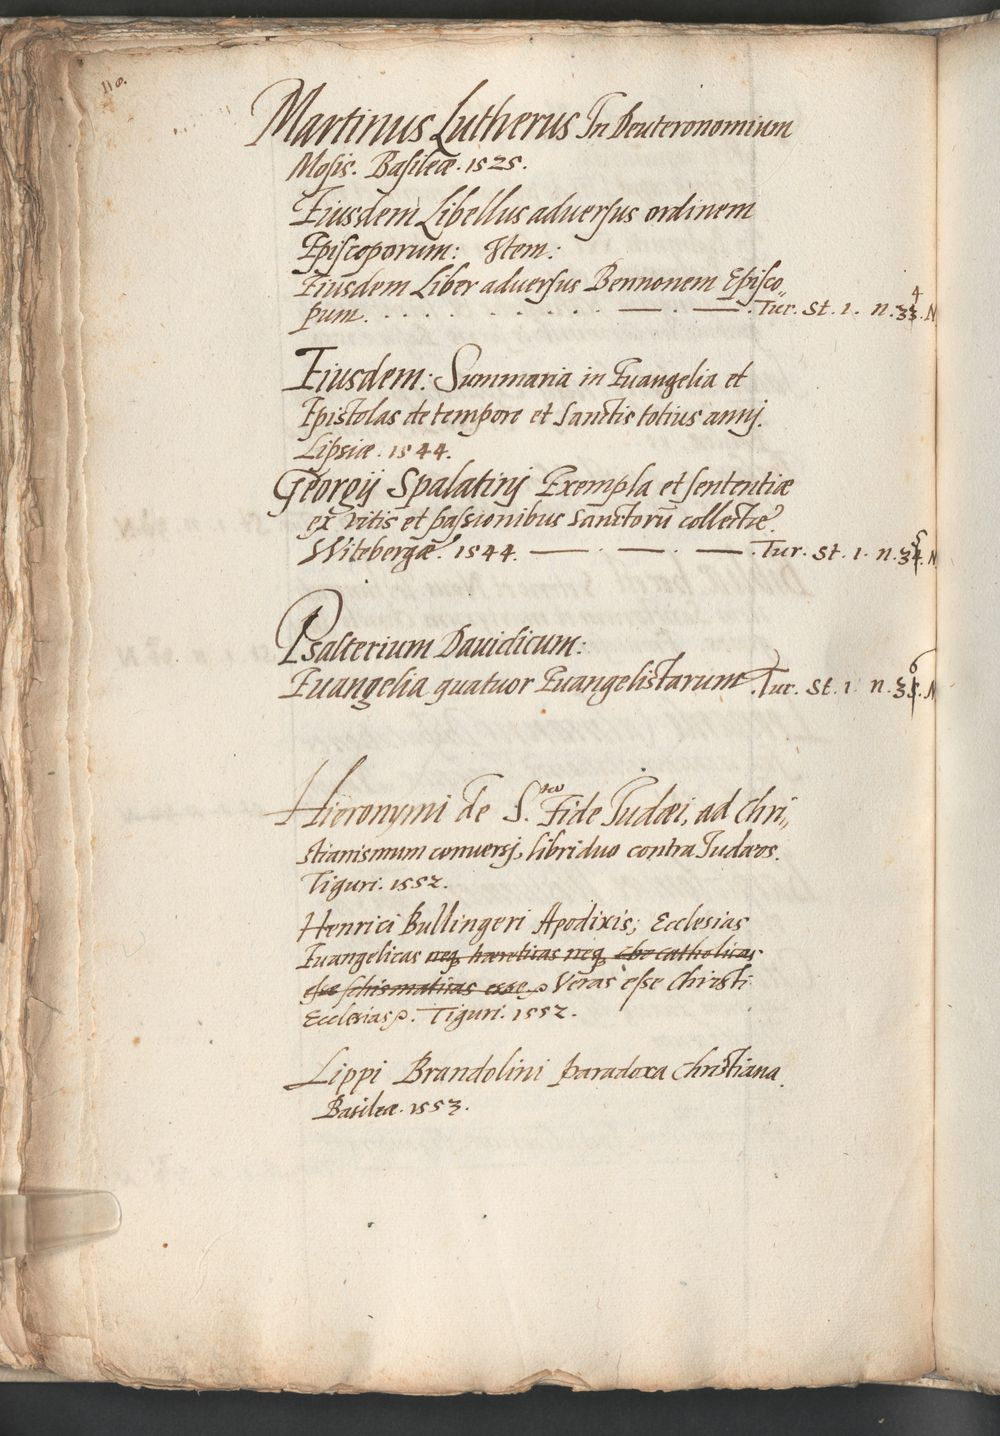 118.
Martinus Lutherus In Deuteronomium
Mosis. Basileæ. 1525.
Eiusdem Libellus aduersus ordinem
Episcoporum: Item:
Eiusdem Liber aduersus Bennonem Episco„
pum. . . . . . . . . — . — . Tur. St. 1. n. 33. 4 N
Eiusdem: Summaria in Euangelia et
Epistolas de tempore et Sanctis totius annj.
Lipsiæ. 1544.
Georgij Spalatinj Exempla et sententiæ
ex vitis et passionibus Sanctorū collectæ.
Witebergæ. 1544. — . — . — . Tur. St. 1. n. 34. 5 N
Psalterium Dauidicum:
Euangelia quatuor Euangelistarum. Tur. St. 1. n. 35. 6 N
Hieronymi de S.ta Fide Iudæi, ad Chri„
stianismum conuersj, libri duo contra Iudæos.
Tiguri. 1552.
Henrici Bullingeri Apodixis; Ecclesias
Euangelicas neq hæreticas neq catholicas
esse schismaticas esse, Veras esse Christi
Ecclesias. Tiguri. 1552.
Lippi Brandolini paradoxa Christiana.
Basileæ. 1553.